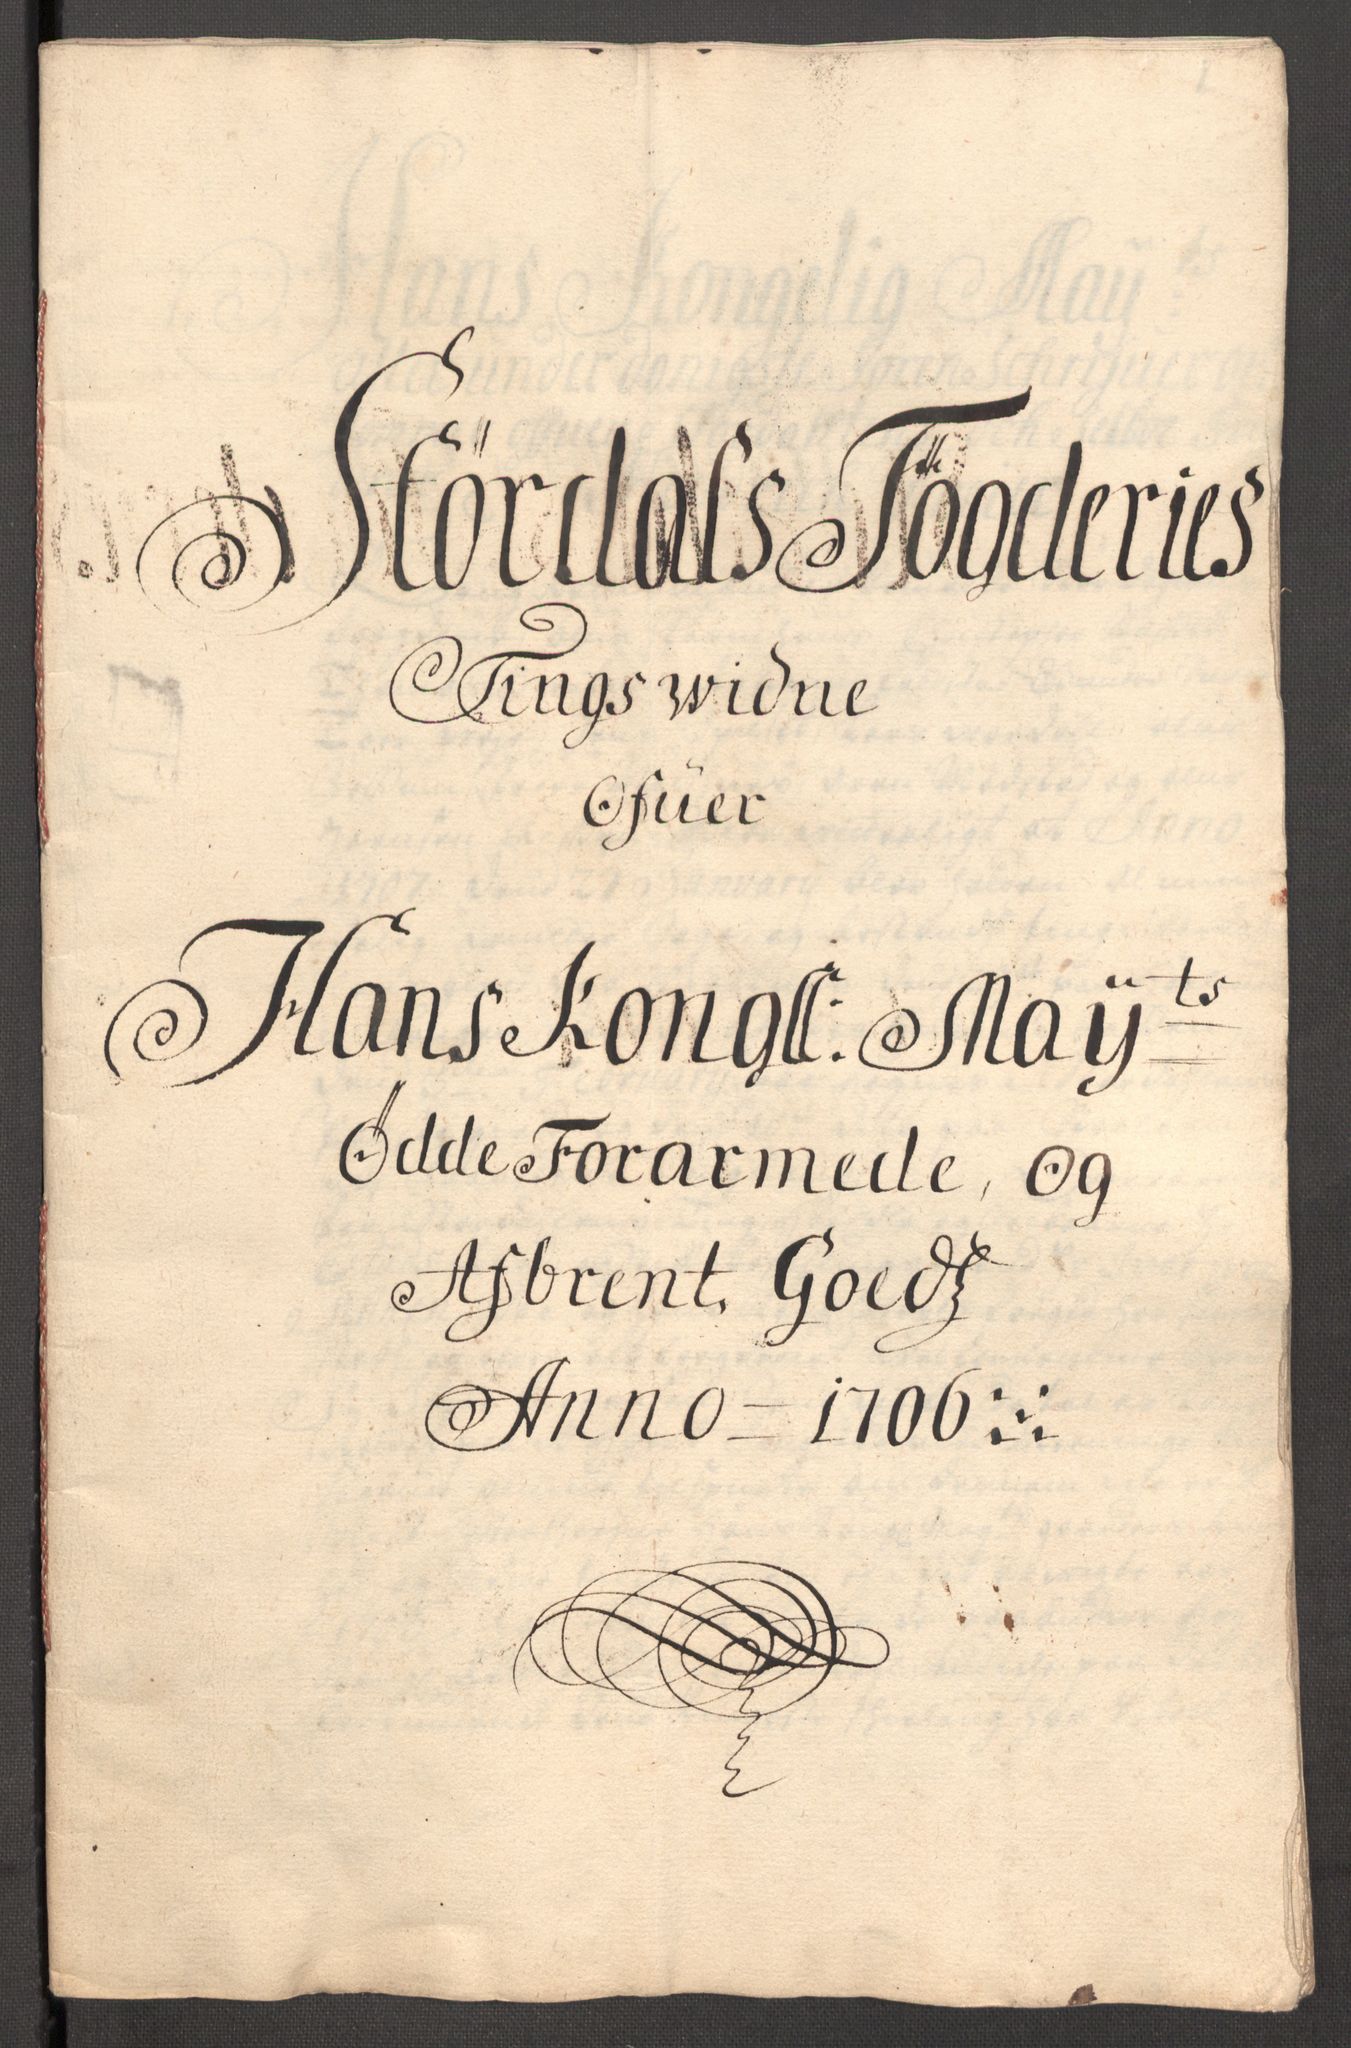 Stördals Fögderies
Tings widne
Ofüer
Hans Kongl: Maÿts
Ødde Forarmede, og
Afbrent, Goedtz
Anno = 1706